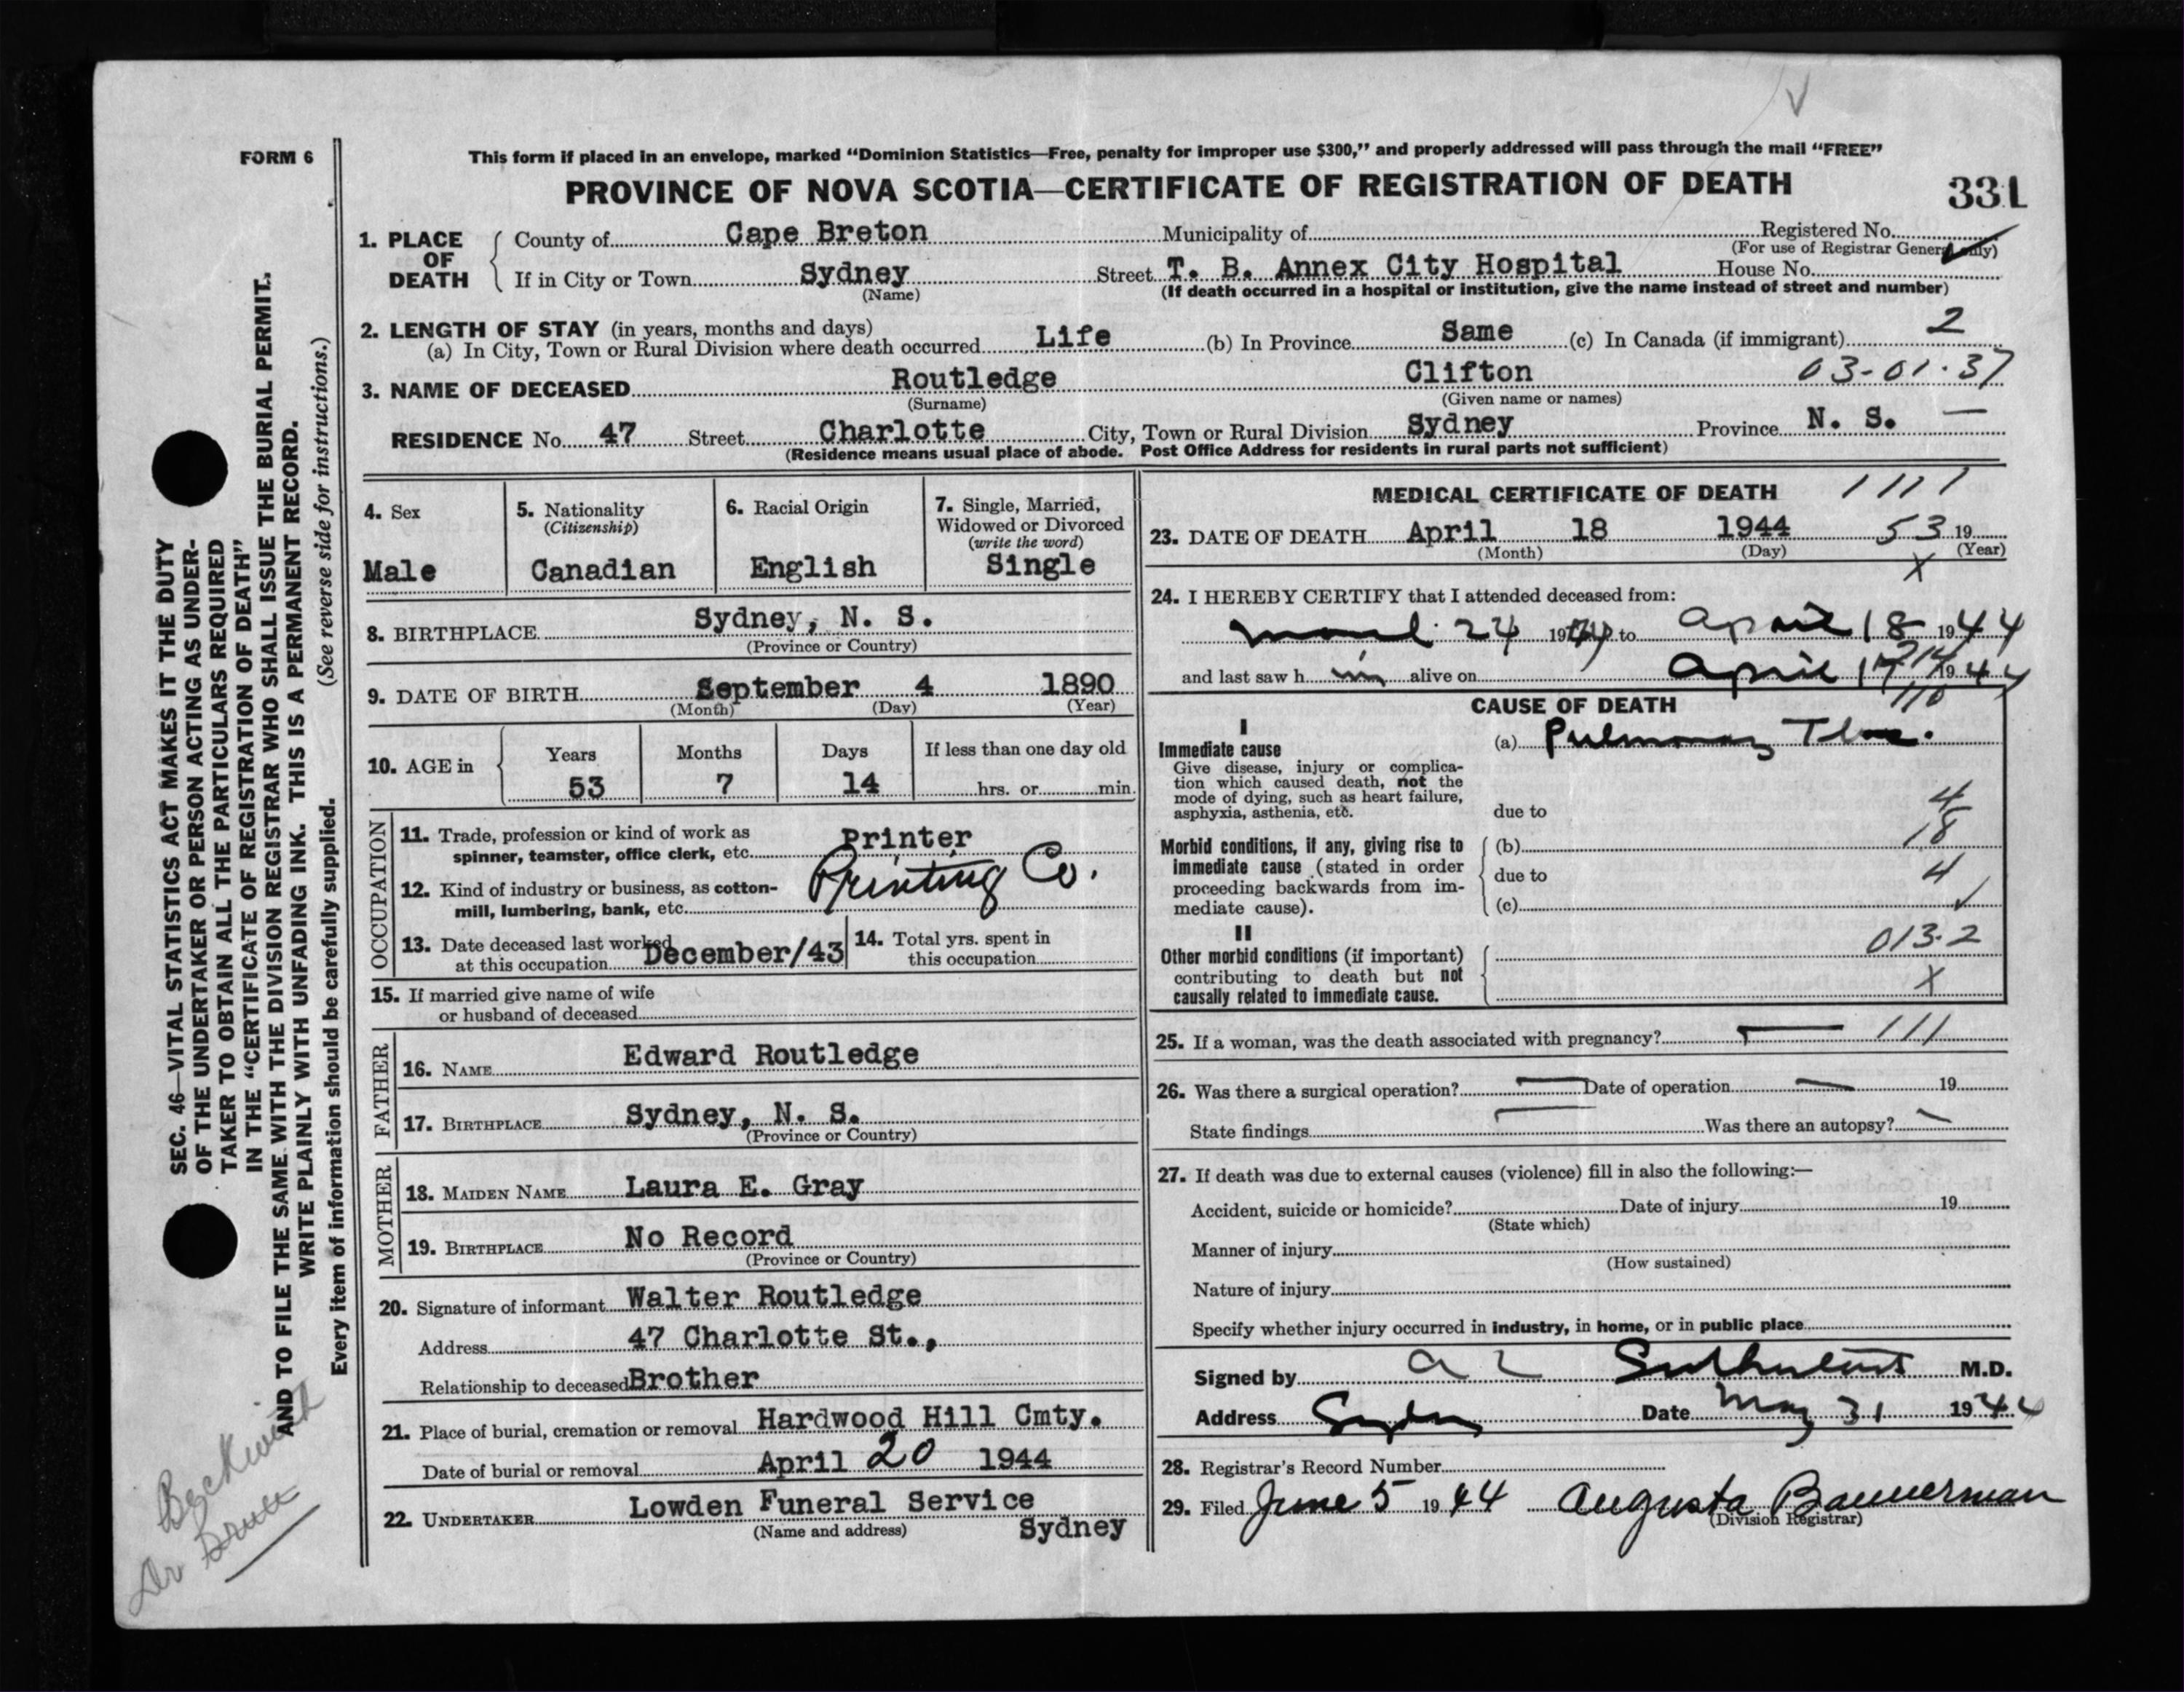 FORM 6
This form if placed in an envelope, marked “Dominion Statistics—Free, penalty for improper use $300,” and properly addressed will pass through the mail “FREE”
PROVINCE OF NOVA SCOTIA—CERTIFICATE OF REGISTRATION OF DEATH
331
1. PLACE OF DEATH
County of Cape Breton Municipality of Registered No.
(For use of Registrar General only)
If in City or Town Sydney Street T. B. Annex City Hospital House No.
(Name) (If death occurred in a hospital or institution, give the name instead of street and number)
2. LENGTH OF STAY (in years, months and days)
(a) In City, Town or Rural Division where death occurred Life (b) In Province Same (c) In Canada (if immigrant) 2
3. NAME OF DECEASED Routledge Clifton 03-01-37
(Surname) (Given name or names)
RESIDENCE No. 47 Street Charlotte City, Town or Rural Division Sydney Province N. S. —
(Residence means usual place of abode. Post Office Address for residents in rural parts not sufficient)
4. Sex
Male
5. Nationality
(Citizenship)
Canadian
6. Racial Origin
English
7. Single, Married,
Widowed or Divorced
(write the word)
Single
8. BIRTHPLACE Sydney, N. S.
(Province or Country)
9. DATE OF BIRTH September 4 1890
(Month) (Day) (Year)
10. AGE in
Years Months Days If less than one day old
53 7 14 hrs. or min.
OCCUPATION
11. Trade, profession or kind of work as
spinner, teamster, office clerk, etc. Printer
12. Kind of industry or business, as cotton-
mill, lumbering, bank, etc. Printing Co.
13. Date deceased last worked
at this occupation December/43
14. Total yrs. spent in
this occupation
15. If married give name of wife
or husband of deceased
FATHER
16. NAME Edward Routledge
17. BIRTHPLACE Sydney, N. S.
(Province or Country)
MOTHER
18. MAIDEN NAME Laura E. Gray
19. BIRTHPLACE No Record
(Province or Country)
20. Signature of informant Walter Routledge
Address 47 Charlotte St.,
Relationship to deceased Brother
21. Place of burial, cremation or removal Hardwood Hill Cmty.
Date of burial or removal April 20 1944
22. UNDERTAKER Lowden Funeral Service
(Name and address) Sydney
MEDICAL CERTIFICATE OF DEATH 1111
23. DATE OF DEATH April 18 1944 53 19
(Month) (Day) (Year)
X
24. I HEREBY CERTIFY that I attended deceased from:
March 24 1944 to April 18 1944
and last saw him alive on April 17 1944
110
CAUSE OF DEATH
I
Immediate cause
Give disease, injury or complica-
tion which caused death, not the
mode of dying, such as heart failure,
asphyxia, asthenia, etc.
(a) Pulmonary Tbc.
due to 4
Morbid conditions, if any, giving rise to
immediate cause (stated in order
proceeding backwards from im-
mediate cause).
(b) 18
due to 4
(c)
II
Other morbid conditions (if important)
contributing to death but not
causally related to immediate cause.
013.2
X
25. If a woman, was the death associated with pregnancy? — 111
26. Was there a surgical operation? — Date of operation — 19
State findings — Was there an autopsy? —
27. If death was due to external causes (violence) fill in also the following:—
Accident, suicide or homicide? Date of injury 19
(State which)
Manner of injury
(How sustained)
Nature of injury
Specify whether injury occurred in industry, in home, or in public place
Signed by M.D.
Address Sydney Date May 31 1944
28. Registrar's Record Number
29. Filed June 5 1944 Augusta Bannerman
(Division Registrar)
SEC. 46—VITAL STATISTICS ACT MAKES IT THE DUTY
OF THE UNDERTAKER OR PERSON ACTING AS UNDER-
TAKER TO OBTAIN ALL THE PARTICULARS REQUIRED
IN THE “CERTIFICATE OF REGISTRATION OF DEATH”
AND TO FILE THE SAME WITH THE DIVISION REGISTRAR WHO SHALL ISSUE THE BURIAL PERMIT.
WRITE PLAINLY WITH UNFADING INK. THIS IS A PERMANENT RECORD.
Every item of information should be carefully supplied. (See reverse side for instructions.)
Beckwith
Dr Bruce